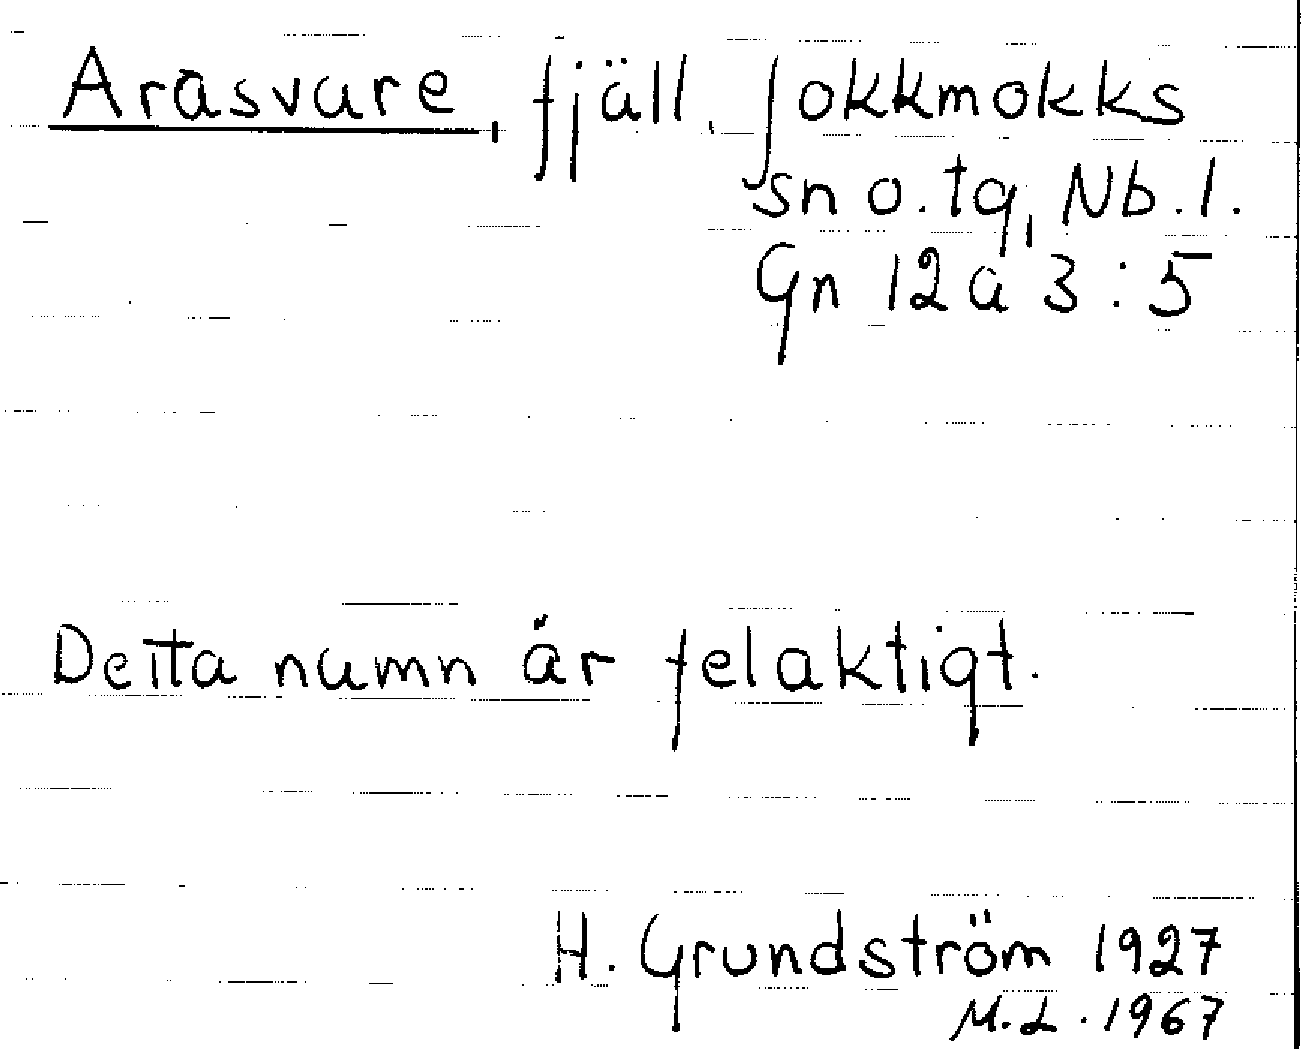 Arasvare, fjäll, Jokkmokks
sn o. tg, Nb. l.
Gn 12a 3:5
Detta namn är felaktigt.
H. Grundström 1927
M.L. 1967